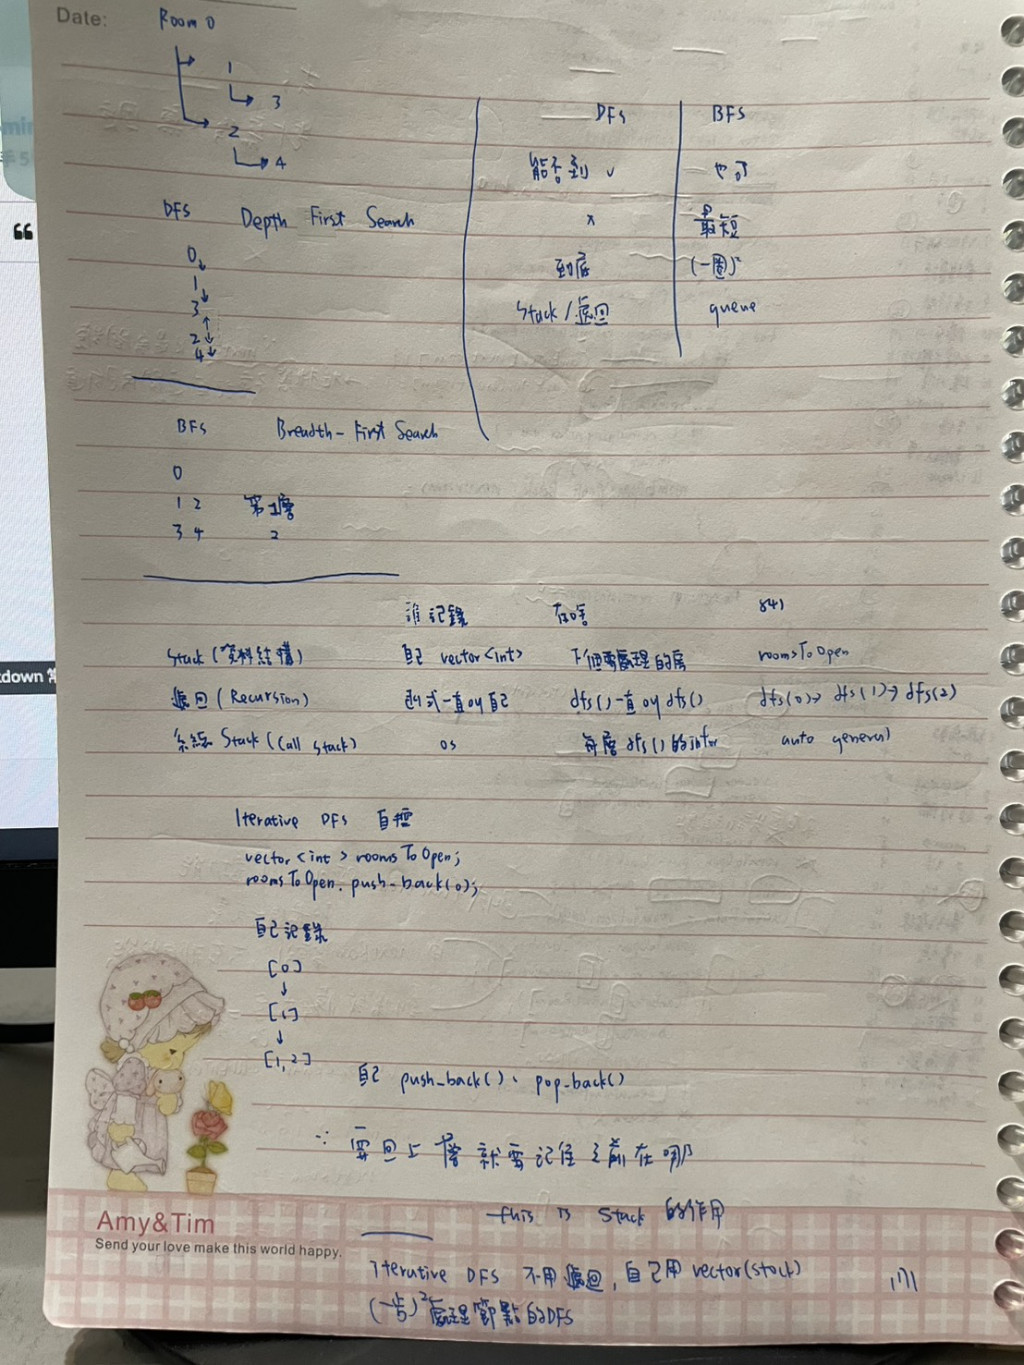 Date:
Room 0
1
3
2
4
DFS BFS
能否到 ✓ 也可
x 最短
到底 (一圈)²
Stack/遞迴 queue
DFS Depth First Search
0
1
3
2
4
BFS Breadth-First Search
0
1 2 第1層
3 4 2
誰記錄 存啥 841
Stack(資料結構) 自己 vector<int> 下個要處理的房 roomsToOpen
遞迴(Recursion) 函式一直call自己 dfs()一直call dfs() dfs(0)→ dfs(1)→ dfs(2)
系統 Stack (Call stack) OS 每層 dfs()的infor auto general
Iterative DFS 自控
vector<int> roomsToOpen;
roomsToOpen.push_back(0);
自己記錄
[0]
↓
[1]
↓
[1,2]
自己 push_back()、pop_back()
∵ 要回上層就要記住之前在哪
this is Stack 的作用
Iterative DFS 不用遞迴,自己用 vector(stack)
(一步)²處理節點的DFS
Amy&Tim
Send your love make this world happy.